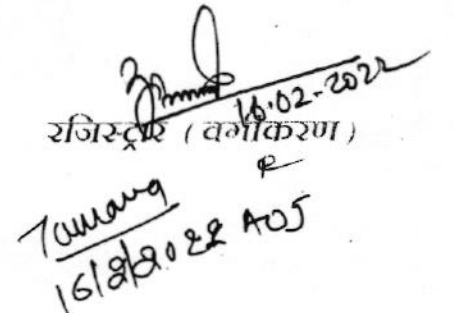 16.02-2022
रजिस्ट्रार (वर्गीकरण)
Tamang
16/2/2022 AOJ